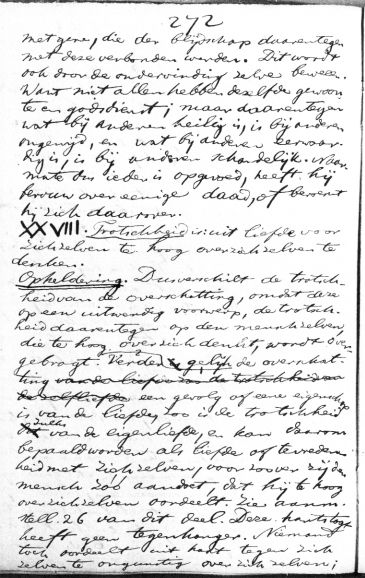 272
met gene, die der blijdschap daarentegen
met deze verbonden werden. Dit wordt
ook door de ondervinding zelve bewezen.
Want niet allen hebben dezelfde gewoon
te en godsdienst; maar daarentegen
wat bij anderen heilig is, is bij anderen
ongewijd, en wat bij anderen eervoor
dig is, is bij anderen schandelijk. Naar
mate dus ieder is opgevoed, heeft hij
berouw over eenige daad, of beroemt
hij zich daarover.
XXVIII. Trotschheid is: uit liefde voor
zichzelven te hoog over zichzelven te
denken.
Opheldering. Dus verschilt de trotsch-
heid van de overschatting, omdat deze
op een uitwendig voorwerp, de trotsch-
heid daarentegen op den mensch zelven,
die te hoog over zich denkt, wordt over-
gebragt. Verder, gelijk de overschat-
ting van de liefde zoo de trotschheid van
de zelfliefde een gevolg of eene eigenschap
is van de liefde, zoo is de trotschheid
dit van de eigenliefde, en kan daarom
bepaald worden als liefde of tevreden-
heid met zichzelven, voor zoover zij den
mensch zoo aandoet, dat hij te hoog
over zichzelven oordeelt. Zie aanm.
stell. 26 van dit deel. Deze hartstogt
heeft geen tegenhanger. Niemand
toch oordeelt uit haat tegen zich
zelven te ongunstig over zichzelven;